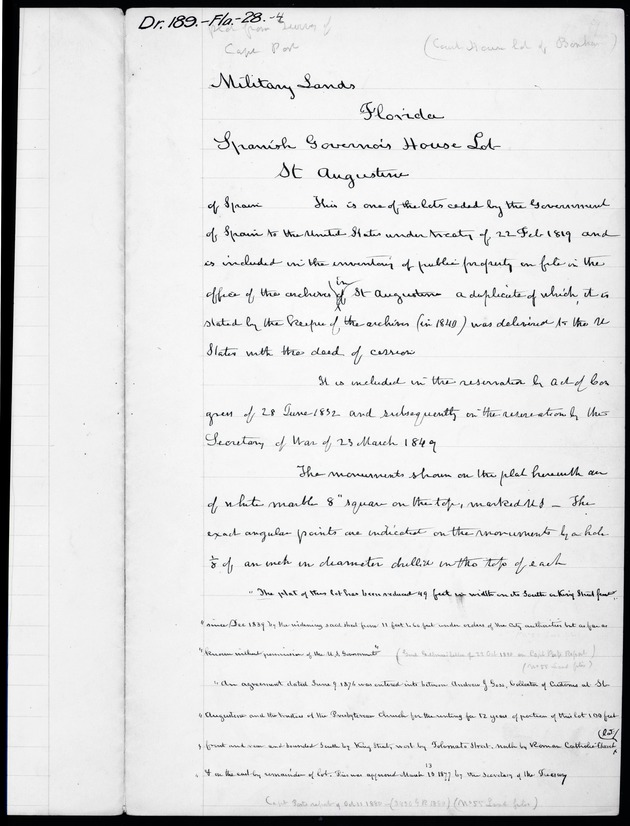 Dr. 189.-Fla.-28.-4
Cape Post
(Court House lot of
Military Lands
Florida
Spanish Governors House Lot
St Augustine
of Spain This is one of the lots ceded by the Government
of Spain to the United States under treaty of 22 Feb 1819 and
is included in the inventory of public property on file in the
office of the archives of in St Augustine a duplicate of which, it is
stated by the keeper of the archives (in 1840) was delivered to the U
States with the deed of cession
It is included in the reservation by act of Con
gress of 28 June 1832 and subsequently in the reservation by the
Secretary of War of 23 March 1849
The monuments shown on the plat herewith are
of white marble 8" square on the top, marked U S – The
exact angular points are indicated on the monuments by a hole
1/8 of an inch in diameter drilled in the top of each
"The plat of this lot has been reduced 49 feet in width on its South or King Street front
"since Dec 1839 by the widening said street from 11 feet to 60 feet under orders of the City authorities but as far as
"known without permission of the U.S. Government" Capt Post Report)
"An agreement dated June 9, 1876 was entered into between Andrew J Goss, Collector of Customs at St
"Augustine and the trustees of the Presbyterian Church for the renting for 12 years of portion of this lot 100 feet
"front and rear and bounded South by King Street, west by Tolomato Street, north by Roman Catholic Church
"& on the east by remainder of lot. Lease was approved March 13 1877 by the Secretary of the Treasury
(Capt Posts report of Oct 11 1880